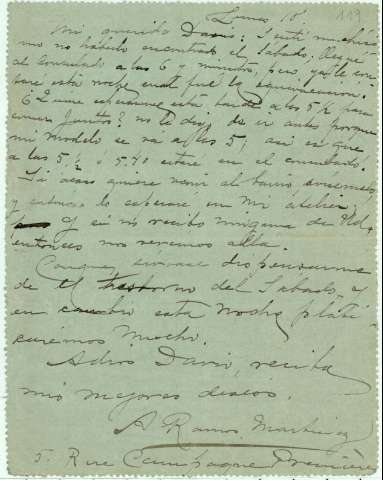 Lunes 10. 119
Mi querido Dario: Sentí muchísi-
mo no haberlo encontrado el Sábado, llegué
al Consulado a las 6 y minutos, pero ya le con-
taré esta noche cual fué la equivocacion.
¿Quiere esperarme esta tarde a las 5½ para
comer juntos? no le digo de ir antes porque
mi modelo se va a las 5, asi es que
a las 5½ o 5.40 estaré en el consulado.
Si acaso quiere venir al barrio avíseme
y entonces lo esperaré en mi atelier,
Y si no recibo ninguna de Ud,
entonces nos veremos allá.
Conque, sírvase dispensarme
de el trastorno del Sábado, y
en cambio esta noche plati-
carémos mucho.
Adios Dario, reciba
mis mejores deséos.
A Ramos Martinez
5. Rue Campagne Première